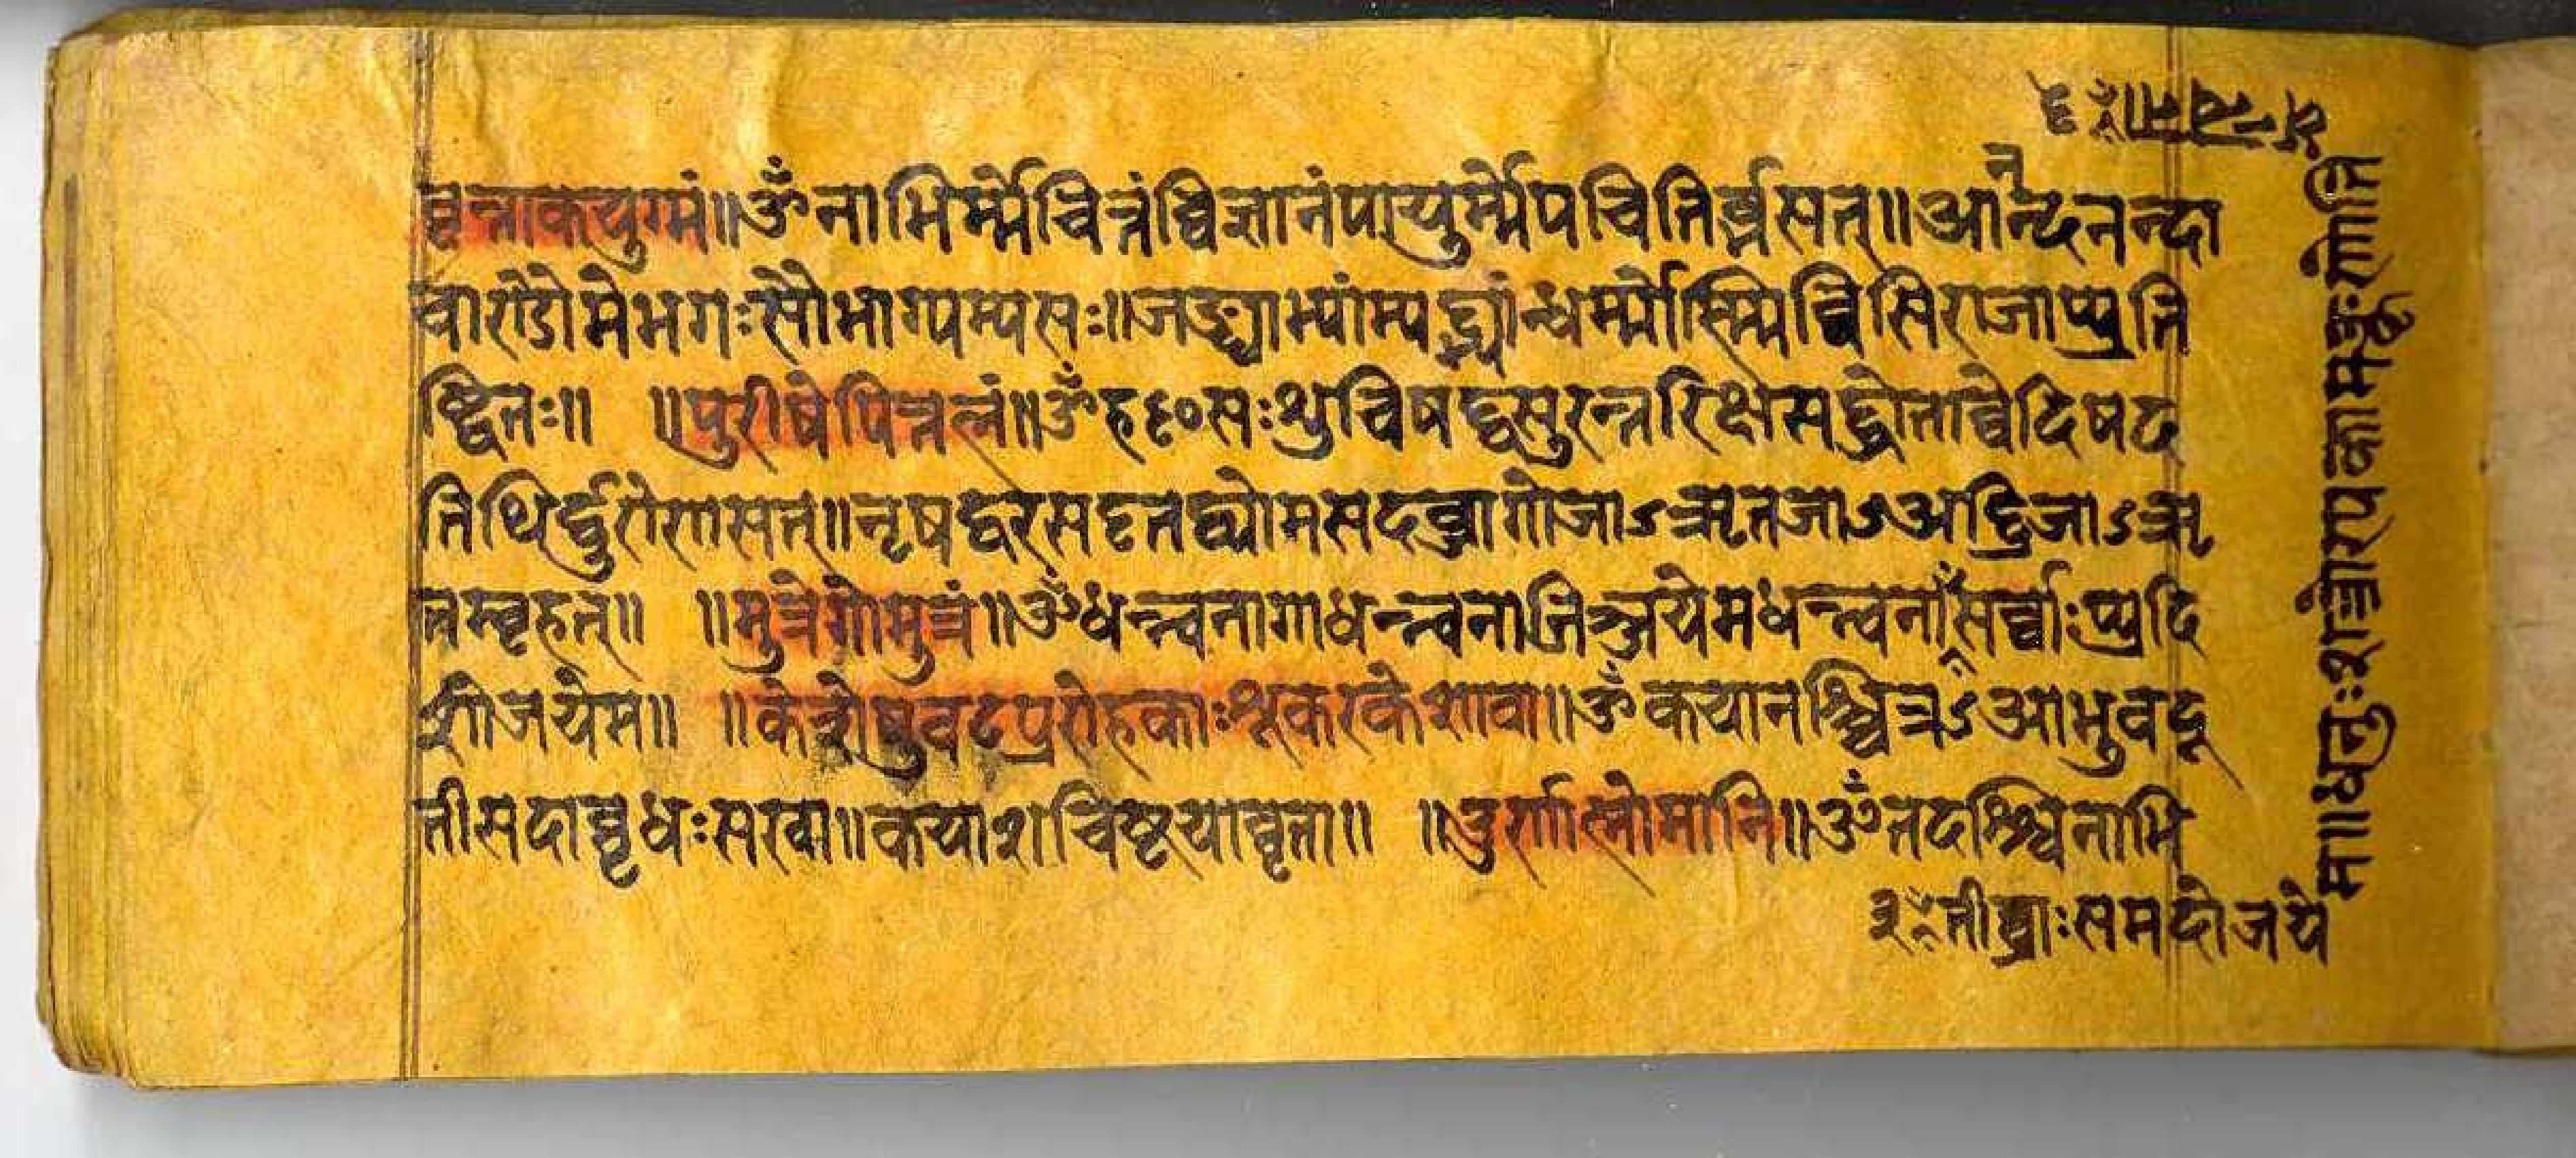 वृन्ताकयुग्मं॥ॐनाभिर्म्मेचित्तंव्विज्ञानंपायुर्म्मेपचितिर्ब्भसत्॥आनन्दनन्दा
वाराडौमेभगःसौभाग्यम्पसः॥जङ्घाभ्यांम्पद्भ्यांन्धर्म्मोस्म्मिव्विसिराजाप्प्रति
ष्ठितः॥ ॥पुरीषेपित्तलं॥ॐहꣳसःशुचिषद्वसुरन्तरिक्षसद्धोताव्वेदिषद
तिथिर्द्दुरोणसत्॥नृषद्वरसदृतद्व्योमसदब्जागोजाऽऋतजाऽअद्रिजाऽऋ
तम्बृहत्॥ ॥मुत्रेगोमुत्रं॥ॐधन्न्वनागाधन्न्वनाजिञ्जयेमधन्न्वनासर्व्वाःप्प्रदि
शोजयेम॥ ॥केशेषुवटप्ररोहकाःशूकरकेशावा॥ॐकयानश्च्चित्रऽआभुवदू
तीसदावृधःसखा॥कयाशचिष्ठयावृता॥ ॥वुर्णालोमानि॥ॐतदश्श्विनाभि
३ तीव्राःसमदोजये
म॥धनुःशत्रोरपकामङ्कृणोति